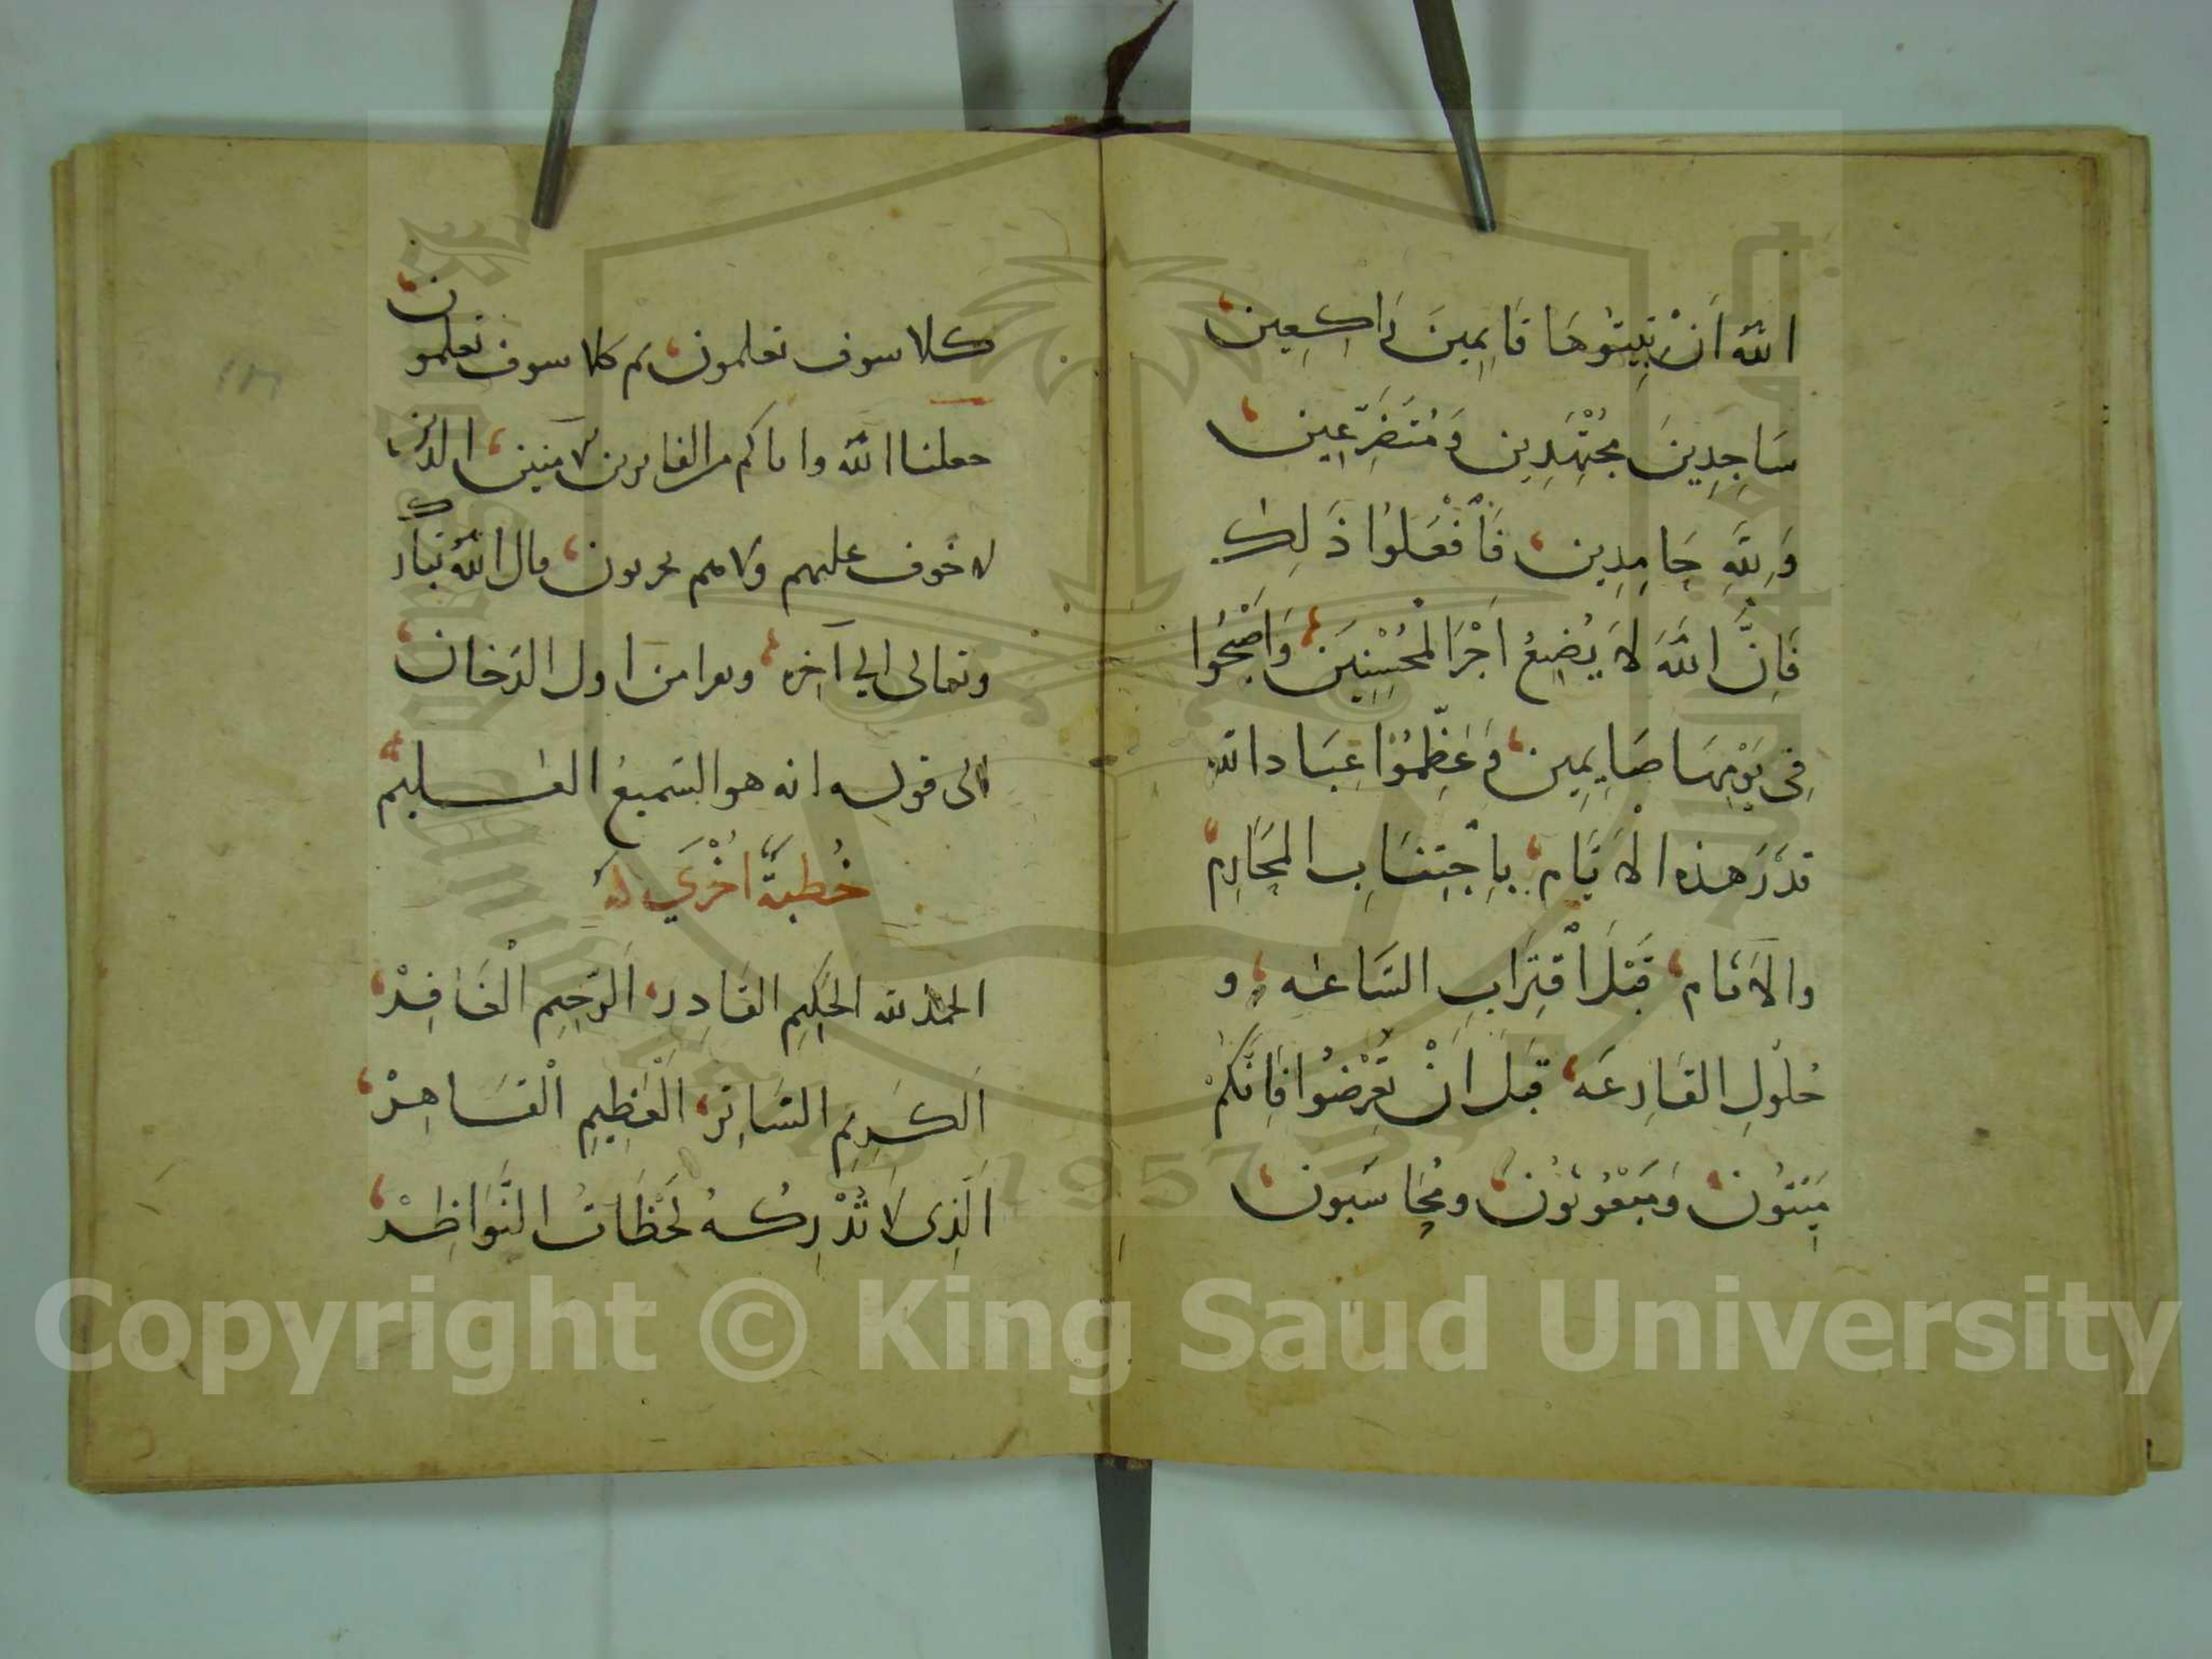 الله اَنْ تبِيتُوهَا قَايِمِينَ رَاكِعِين
سَاجِدِينَ مُجْتَهِدِين وَمُتَضَرِّعِين
وَلِلّهِ حَامِدِين فَاْفْعَلوُا ذَلِك
فَاِنَّ اللهَ لاَ يُضِيعُ اَجْرَ الْمُحْسِنِينَ وَاَصْبِحُوا
فِى يَوْمِهَا صَايِمِين وَعَظِّمُوْا عِبَاد الله
قدْرَ هذه الاَيَام بِاِجْتِنَابِ المَحَارِم
والاَثَام قَبْلَ اْقتِرَابِ السَّاعَه و
حُلوُلِ القَارِعَه قَبْلَ انْ تُعْرَضُوا فَاِنَّكمْ
مَيّتوُن وَمَبْعُوثوُن ومُحَاسَبون
كلا سوف تعلمون ثم كلا سوف تعلمون
جعلنا الله واياكم من الفايزين الآمنين الذين
لا خوف عليهم ولا هم يحزنون قال الله تبارك
وتعالى الي آخره ويقرا من اول الدخان
الى قوله انه هو السّميعُ العليم
خُطبةٌ اخْرَي
الحمد لله الحَكِيمِ القَادِر اَلرّحِيمِ الْغَافِرْ
اَلكَرِيمِ السَّاتِرْ اَلْعَظِيمِ الْقَاهِرْ
اَلَّذِى لاَ تُدْرِكُهُ لَحْظَاتُ النَّوَاظِرْ
Copyright © King Saud University
1957